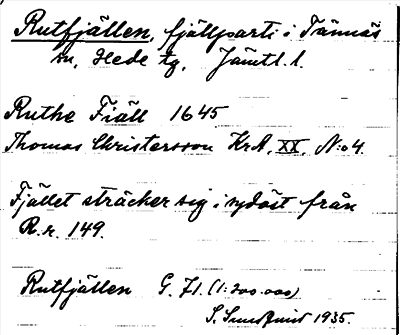 Rutfjällen, fjällparti i Tännäs
sn, Hede tg, Jämtl. l.
Ruthe Fiäll 1645
Thomas Christersson KrA, XX, N:o 4.
Fjället sträcker sig i sydöst från
R.r. 149.
Rutfjällen G. Zl. (1:200.000)
S. Sundquist 1935.